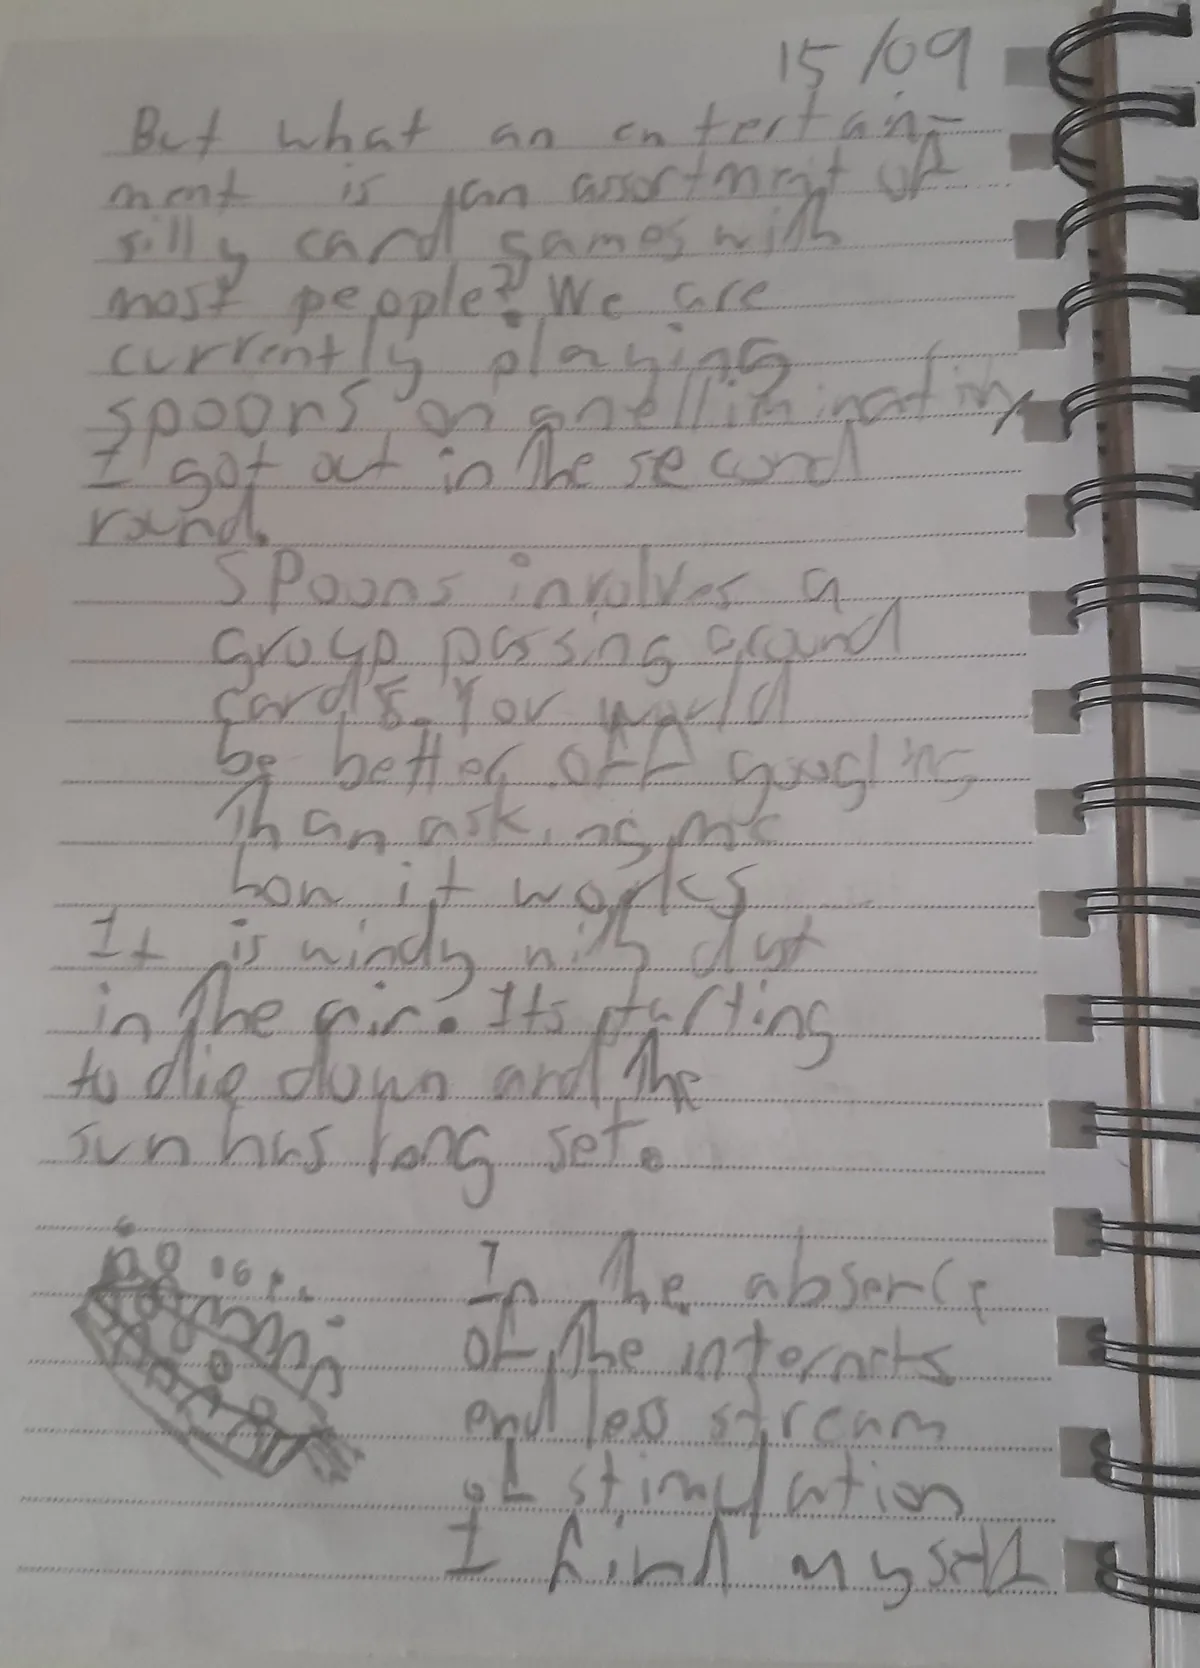 15/09
But what an entertain-
ment is an assortment of
silly card games with
most people? We are
currently playing
spoons, on an ellimination,
I got out in the second
round.
Spoons involves a
group passing around
cards. You would
be better off googling
than asking me
how it works
It is windy with dust
in the air. Its starting
to die down and the
sun has long set.
In the absence
of the internets
endless stream
of stimulation
I find myself